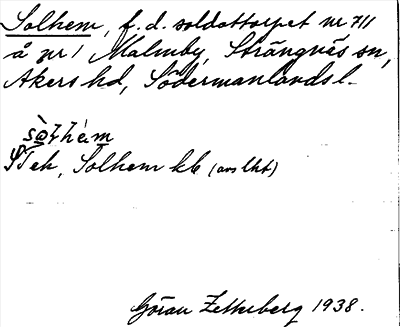 Solhem, f. d. soldattorpet nr 711
å nr 1 Malmby, Strängnäs sn,
Åkers hd, Södermanlands l.
sòlhèm
Ek, Solhem kb (avs lht)
Göran Zetterberg 1938.